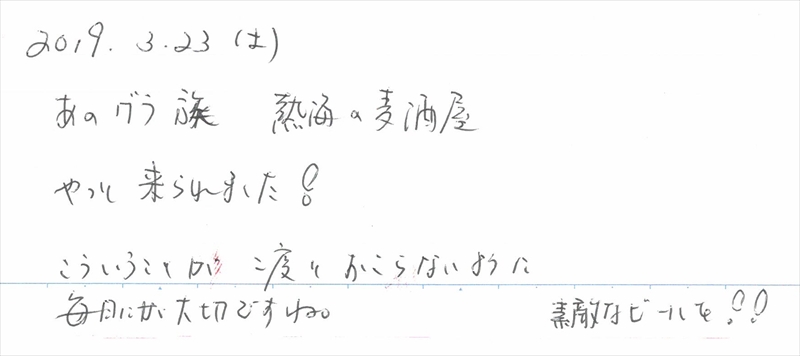 2019.3.23(土)
あのグラ族 熱海の麦酒屋
やっと来られました!
こういうことが二度とおこらないように
毎日にが大切ですね。 素敵なビールを!!